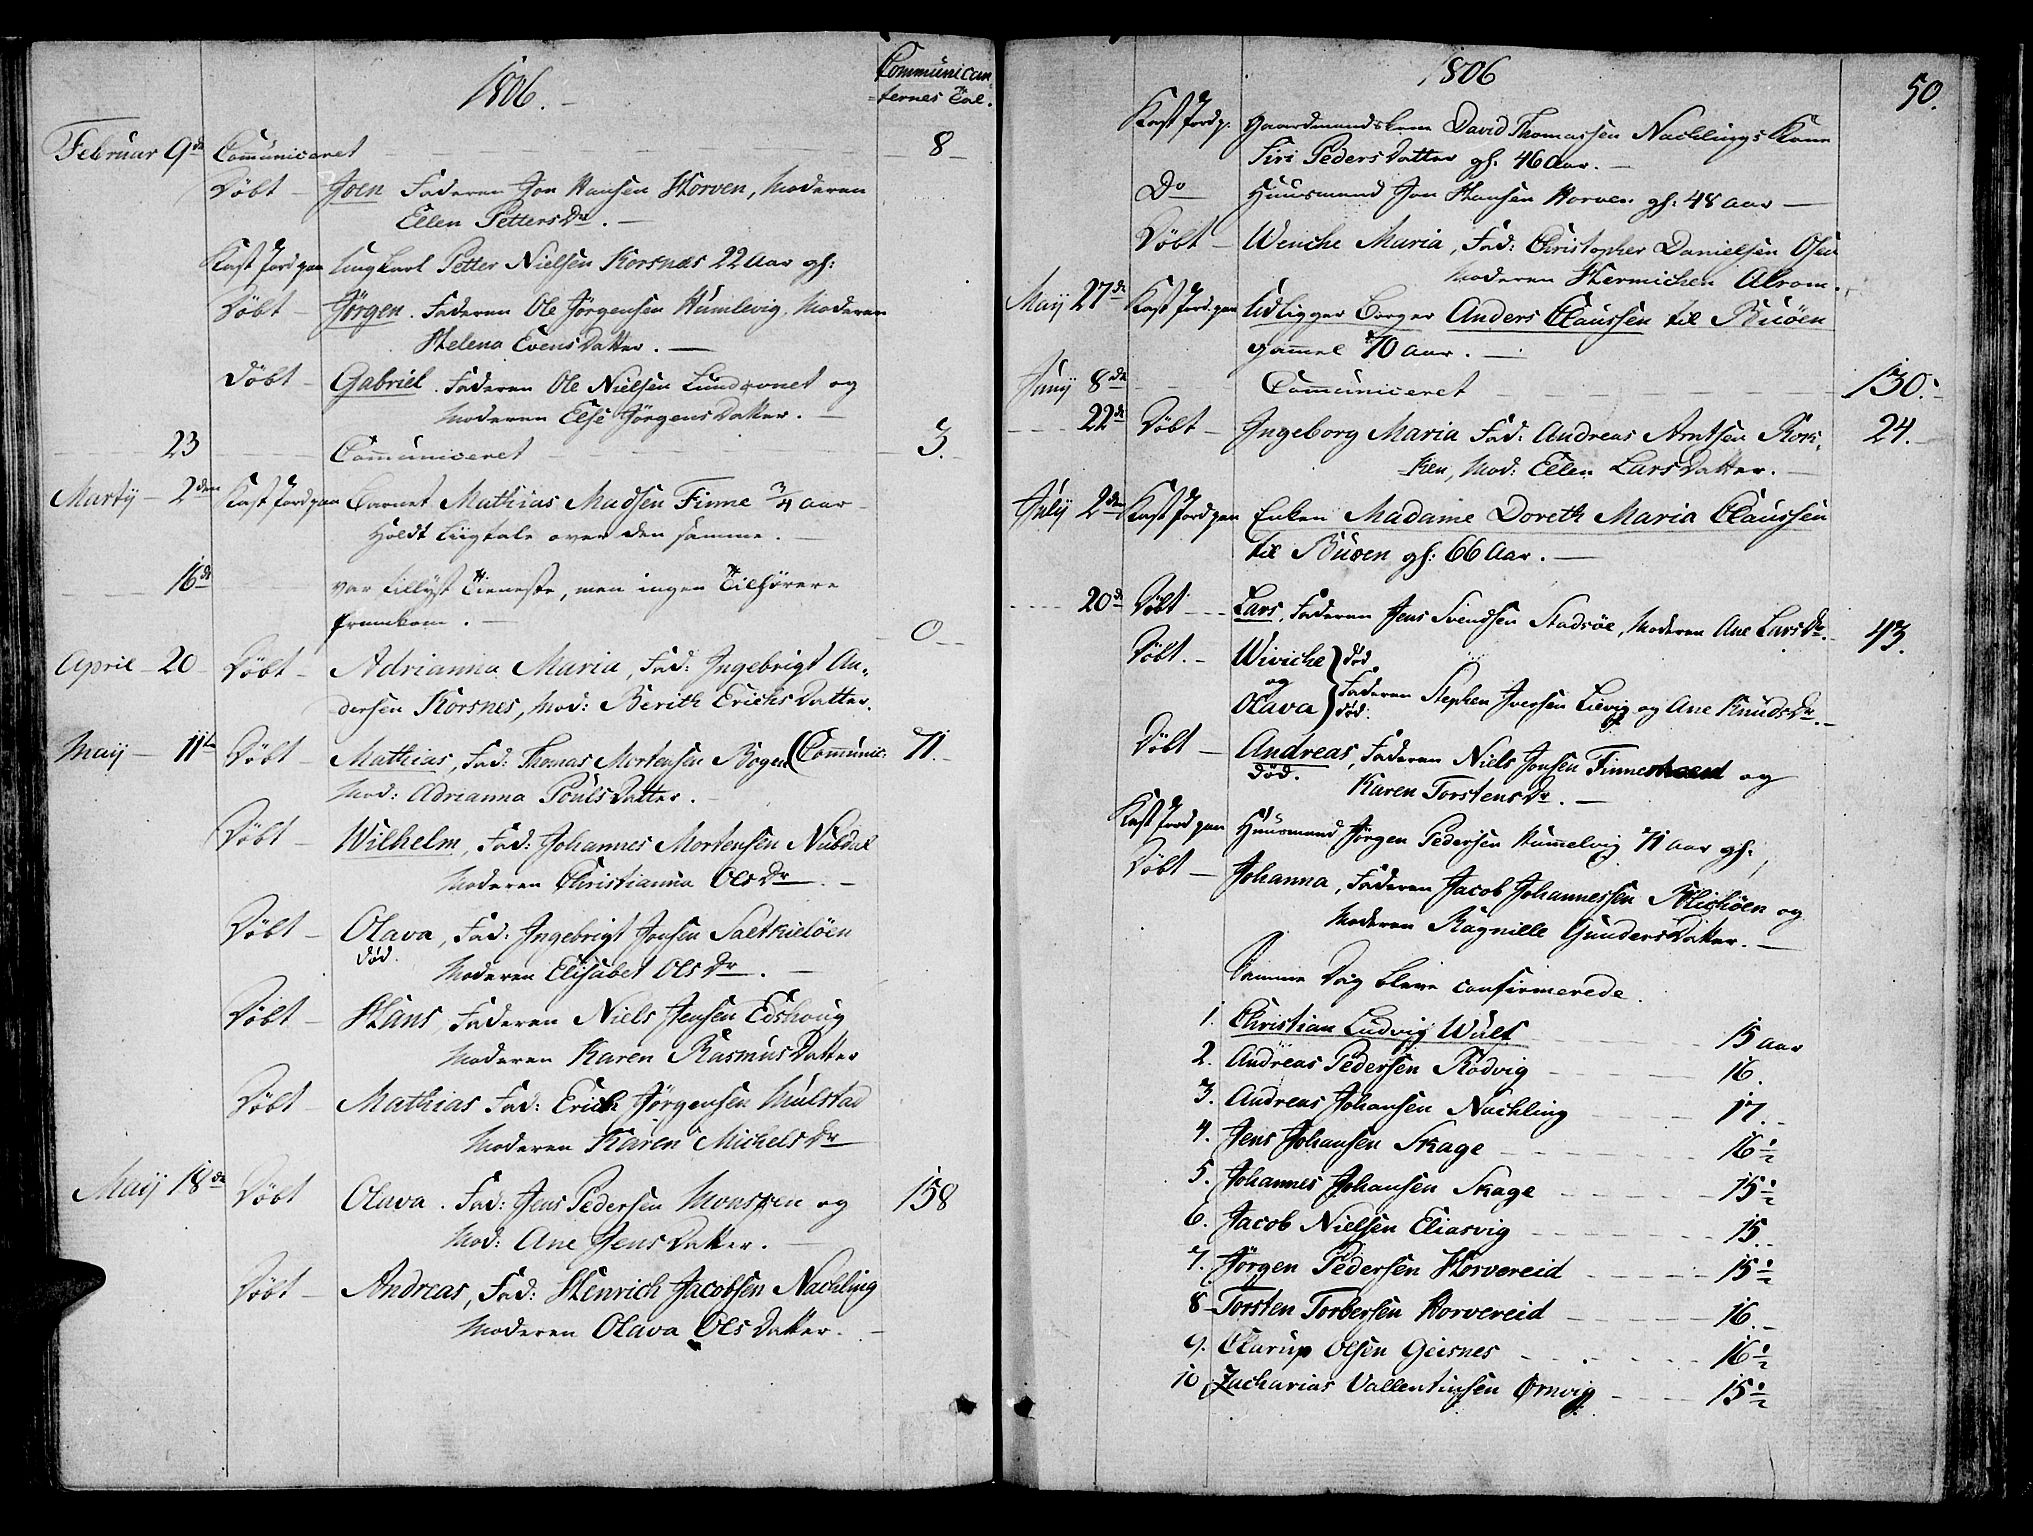 1806.
Communican-
ternes Tal.
Februar 9de Comuniceret 8
Döbt Joen Faderen Jon Hansen Horven, Moderen
Ellen Petters Dr.
Kast Jord paa Ungkarl Petter Nielsen Korsnæs 22 Aar gl:
Döbt Jörgen. Faderen Ole Jörgensen Humlevig, Moderen
Helena Evens Datter.
Döbt Gabriel. Faderen Ole Nielsen Lundavnet og
Moderen Else Jörgens Datter.
23 Comuniceret 3.
Martij 2den Kast Jord paa Barnet Mathias Madsen Finne 3/4 Aar
Holdt Liigtale over den samme.
16de var tillyst Tieneste, men ingen Tilhörere
fremkom. 0
April 20 Döbt Adrianna Maria, Fad: Ingebrigt An-
dersen Korsnes, Mod: Berith Erichs Datter.
Maij 11te Döbt Mathias, Fad: Thomas Mortensen Bogen (Communic: 71.
Mod: Adrianna Pouls Datter.
Döbt Wilhelm, Fad: Johannes Mortensen Nubdal
Moderen Christianna Ols Dr.
Döbt Olava, Fad: Ingebrigt Jonsen Saltkielöen
död. Moderen Elisabet Ols Dr.
Döbt Hans, Faderen Niels Jensen Edshoug
Moderen Karen Rasmus Datter
Döbt Mathias Fad: Erich Jörgensen Mulstad
Moderen Karen Michels Dr
Maij 18de Döbt Olava. Fad: Jens Pedersen og 158
Mod: Ane Jens Datter.
Döbt Andreas, Fad: Henrich Jacobsen Nachling
Moderen Olava Ols Datter.
1806
50.
Kast Jord p: Gaardmandskone David Thomassen Nachlings Kone
Siri Peders Datter gl: 46 Aar.
Do Huusmand Jon Hansen Horven gl: 48 Aar
Döbt Wenche Maria, Fad: Christopher Danielsen Osen
Moderen Hermichen Alrom.
Maij 27de Kast Jord paa Udligger Borger Anders Claussen til Buöen
gammel 70 Aar.
Junij 8de Comuniceret 130.
22de Döbt Ingeborg Maria Fad: Andreas Arntsen Rors- 24.
ken, Mod: Ellen Lars Datter.
Julij 2den Kast Jord paa Enken Madame Doreth Maria Claussen
til Buöen gl: 66 Aar.
20de Döbt Lars, Faderen Jens Svendsen Stadsöe, Moderen Ane Lars Dr. 43.
Döbt. Wiviche död
og Faderen Stephen Iversen Lievig og Ane Knuds Dr.
Olava död.
Döbt Andreas, Faderen Niels Jonsen Finnestrand og
död. Karen Torstens Dr.
Kast Jord paa Huusmand Jörgen Pedersen Hummelvig 71 Aar gl:
Döbt Johanna, Faderen Jacob Johannessen og
Moderen Ragnille Gunders Datter.
Samme Dag bleve confirmerede.
1. Christian Ludvig Wulf 15 Aar
2. Andreas Pedersen Rödvig 16.
3. Andreas Johansen Nachling 17.
4. Jens Johansen Skage 16 1/2
5. Johannes Johansen Skage 15 1/2
6. Jacob Nielsen Eliasvig 15.
7. Jörgen Pedersen Horvereid 15 1/2
8 Torsten Torbersen Horvereid 16.
9. Clarup Olsen Geisnes 16 1/2
10 Zacharias Vallentinsen Ornvig 15 1/2